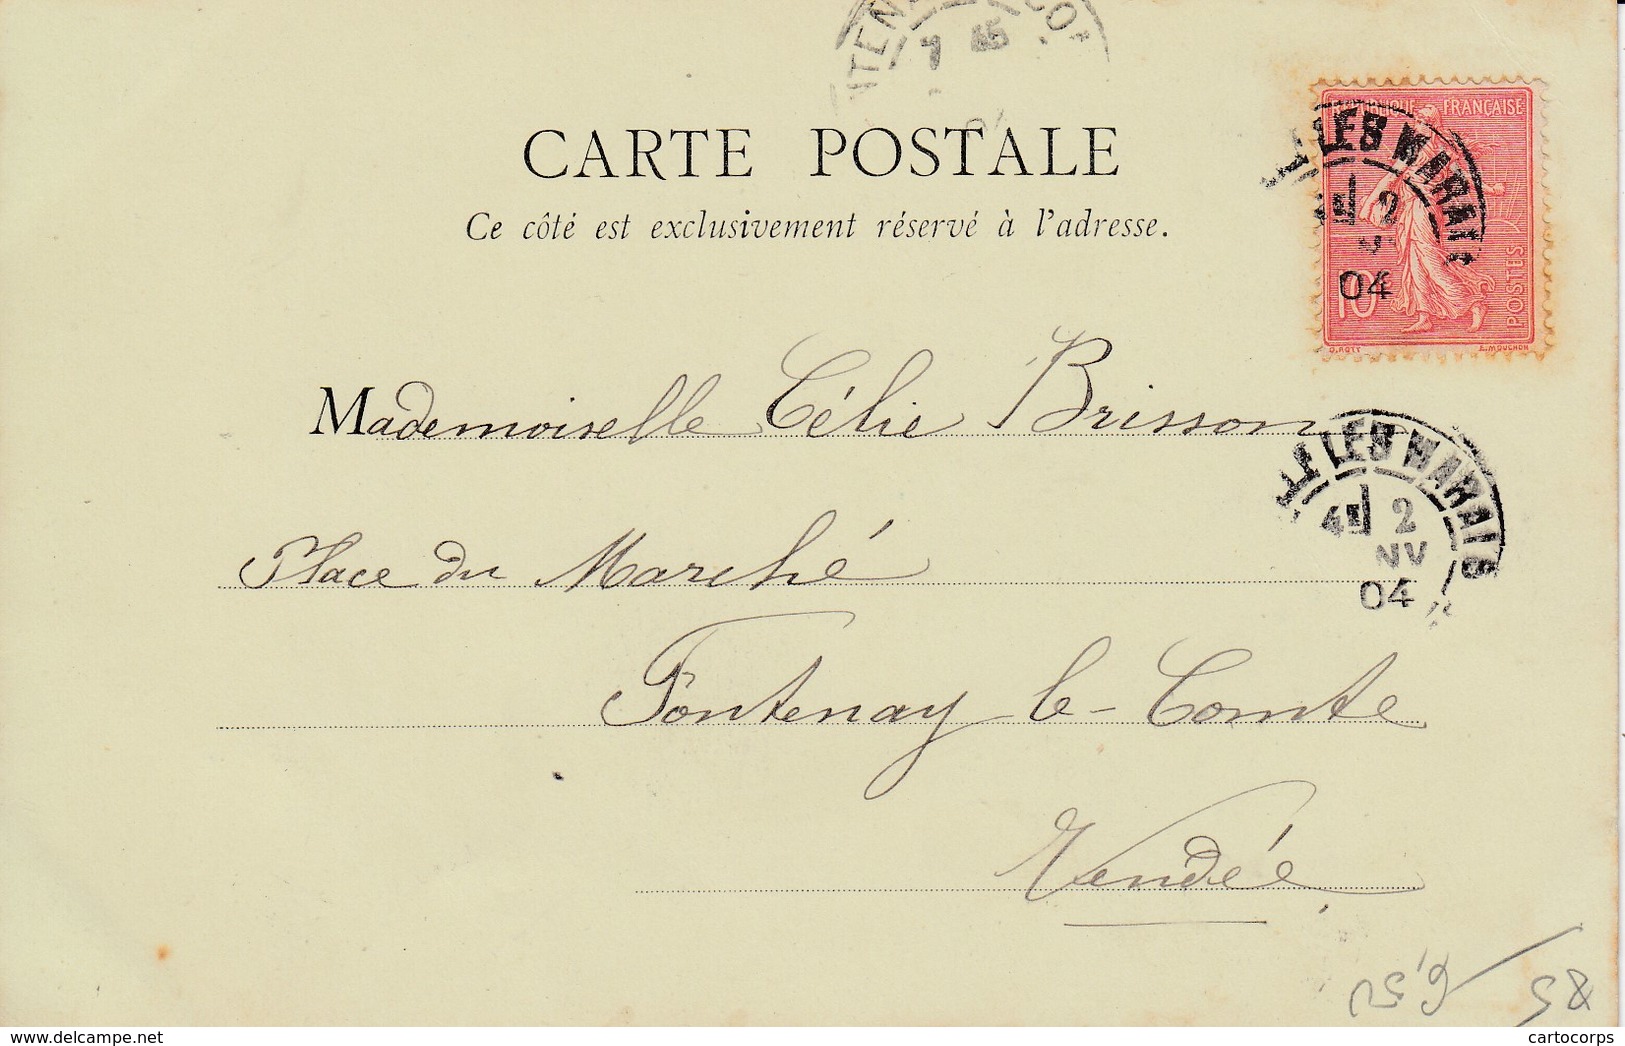 NTEN CO
7 45
CARTE POSTALE
Ce côté est exclusivement réservé à l'adresse.
RÉPUBLIQUE FRANÇAISE
LES MARAIS
2
04
10
POSTES
O. ROTY E. MOUCHON
Mademoiselle Célie Brisson
LES MARAIS
2
NV
04
Place du Marché
Fontenay le-Comte
Vendée
cartocorps